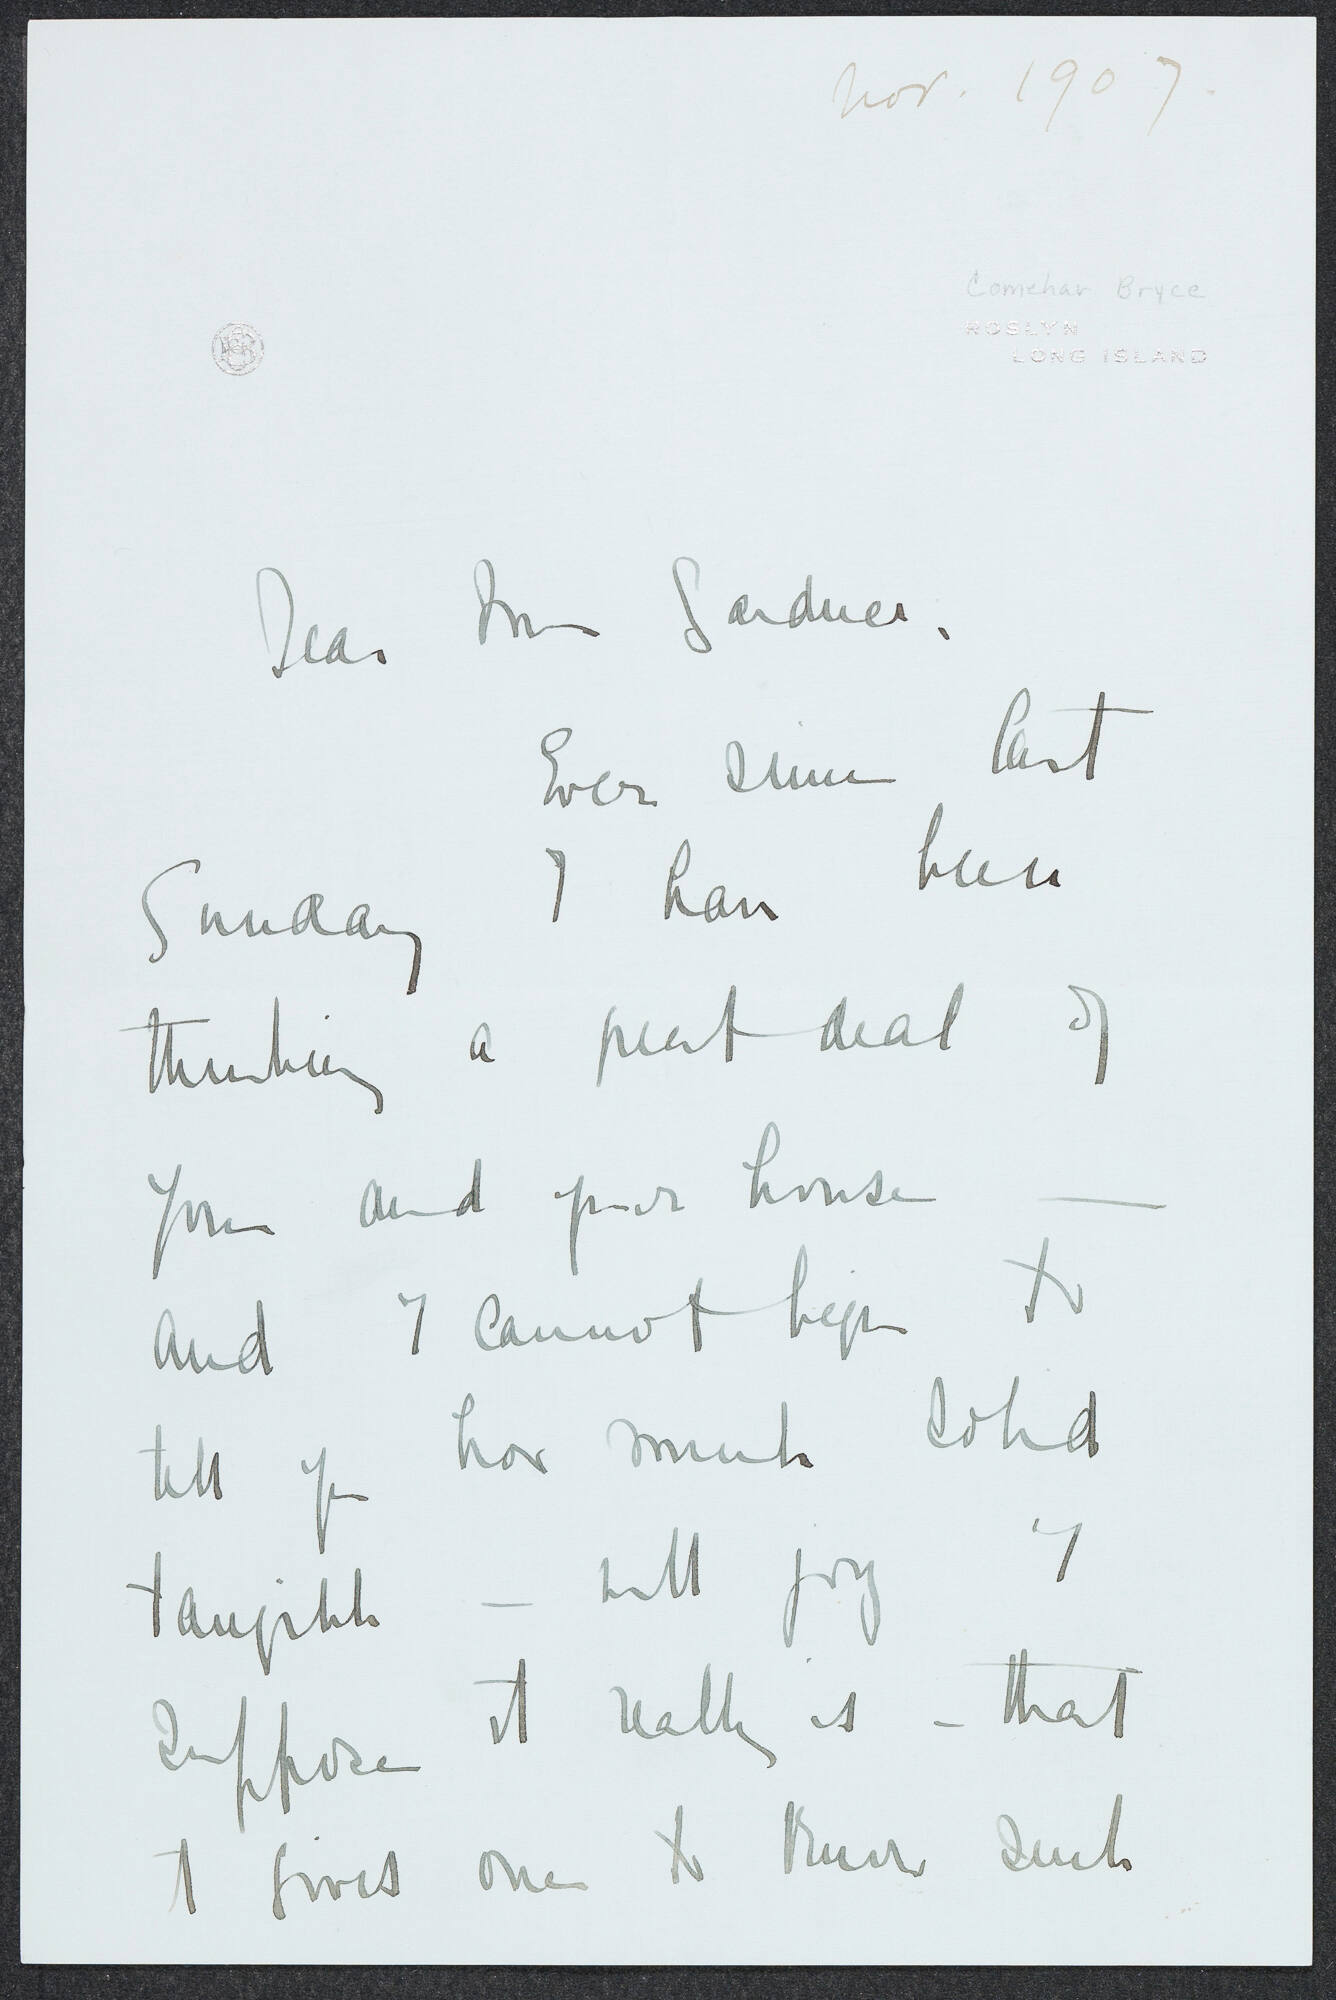 Nov. 1907.
Bryce
ROSLYN
LONG ISLAND
Dear Mrs Gardner.
Ever since last
Sunday I have been
thinking a great deal of
you and your house —
and I cannot begin to
tell you how much solid
tangible — well joy I
suppose it really is – that
it gives one to know such